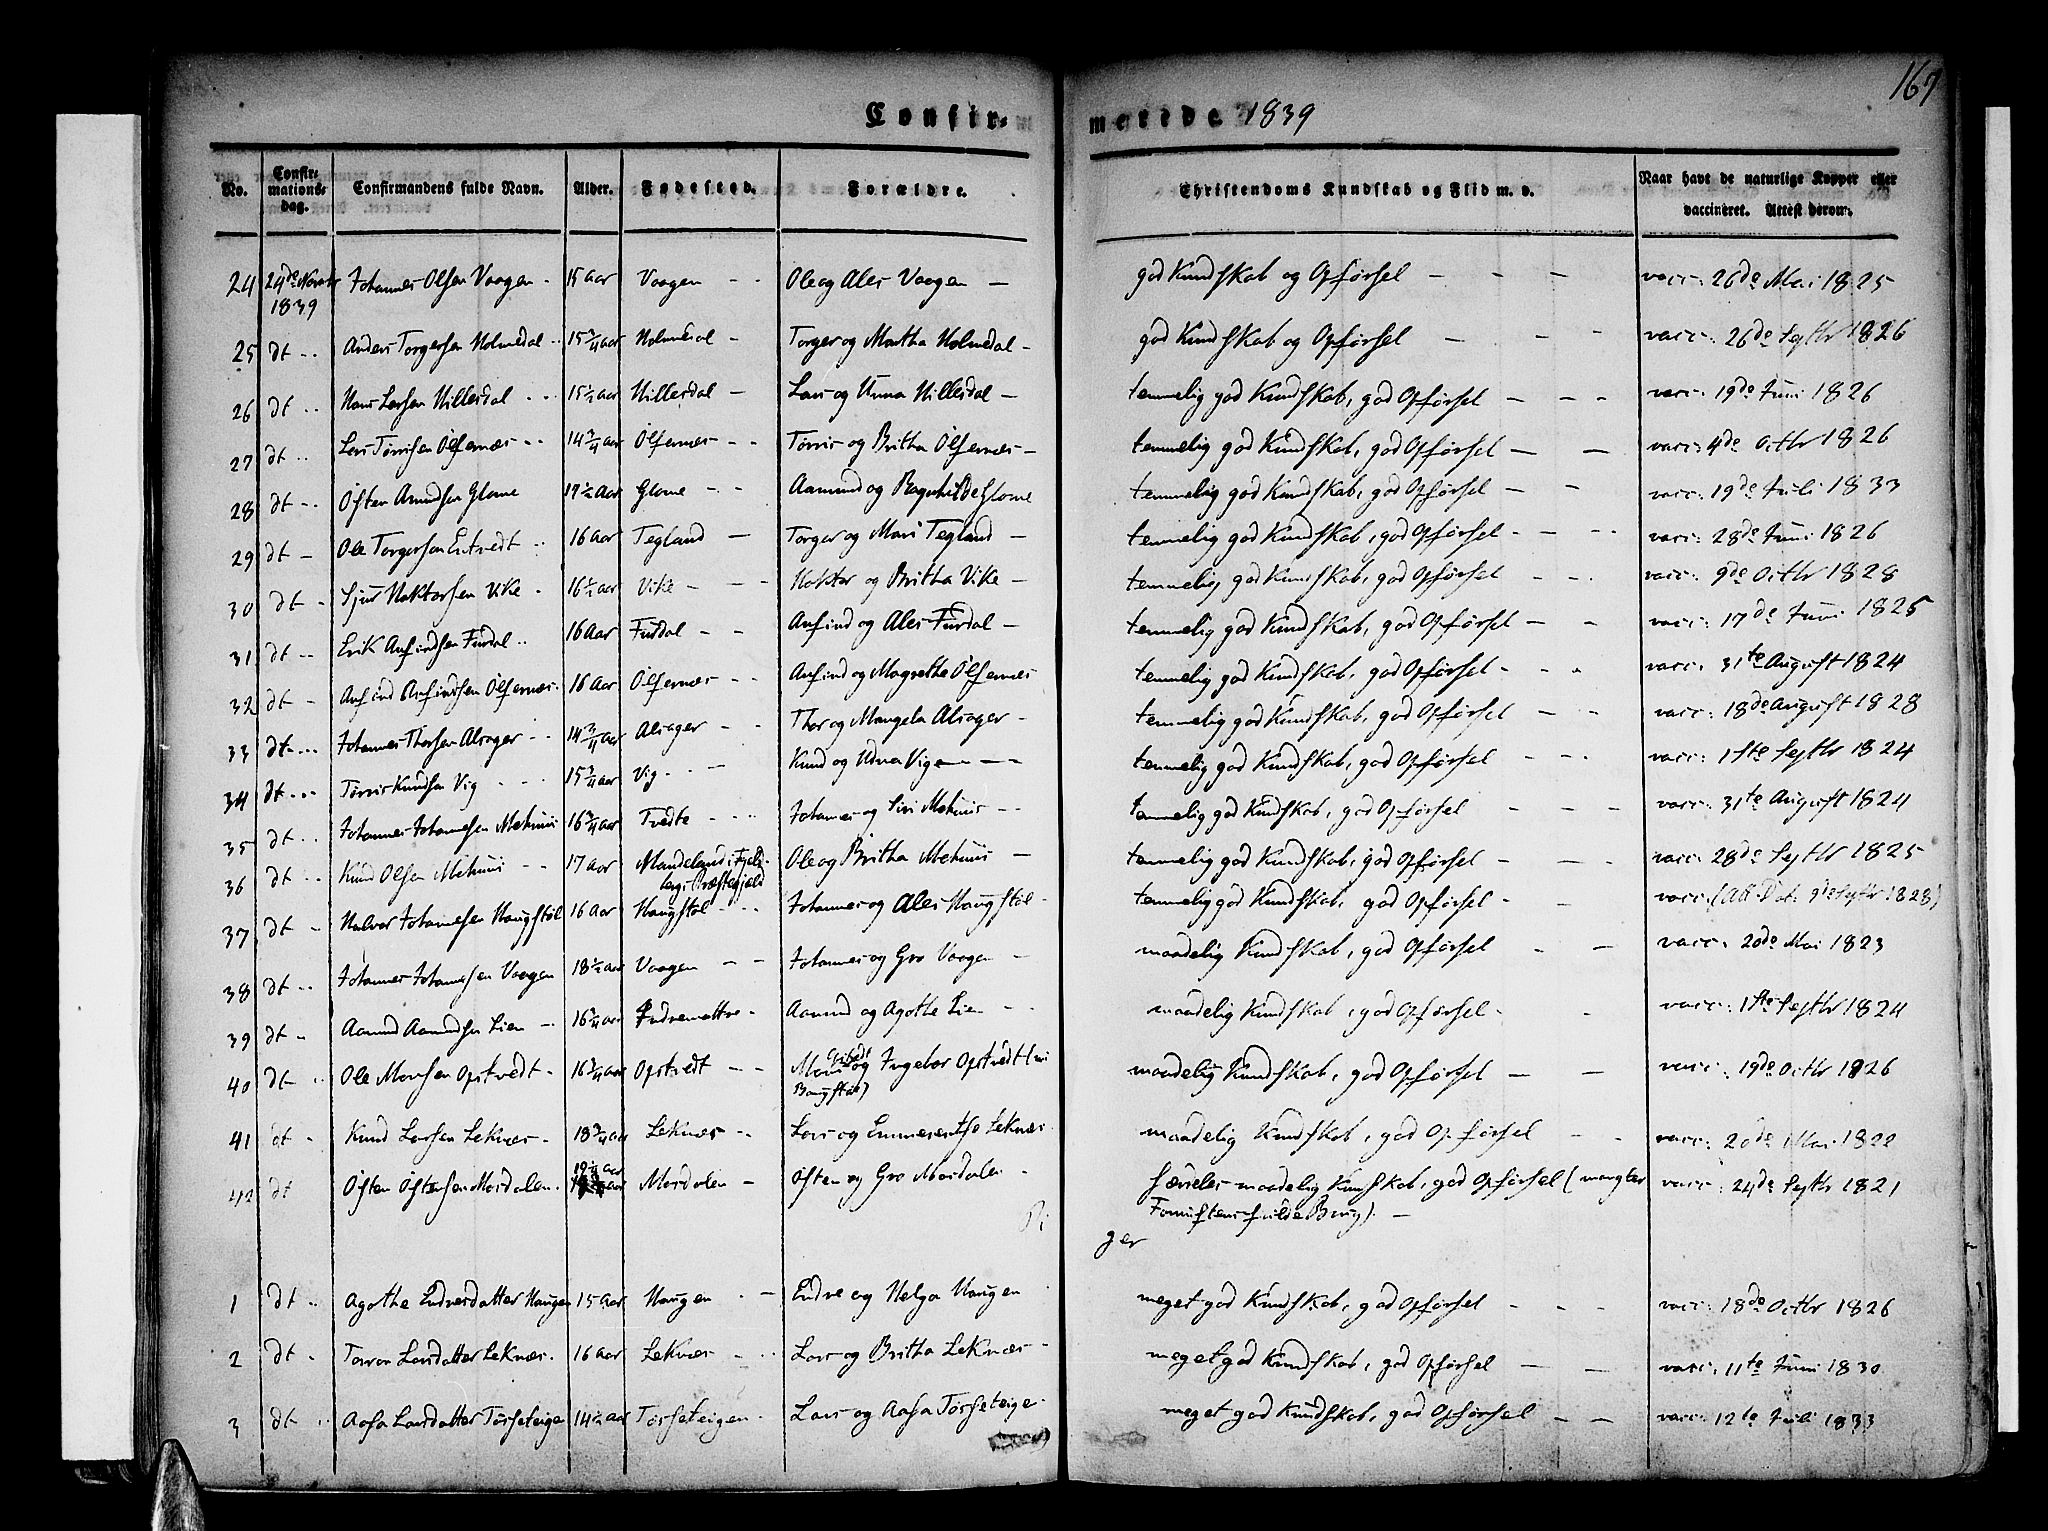 167
Confirmerede 1839
No. Confirmationsdag. Confirmandens fulde Navn. Alder. Fødested. Forældre. Christendoms Kundskab og Flid m. v. Naar havt de naturlige Kopper eller vaccineret. Attest derom.
24 24de Novbr 1839 Johannes Olsen Vaagen 15 Aar Vaagen Ole og Ales Vaagen god Kundskab og Opførsel vacc: 26de Mai 1825
25 dt Anders Torgersen Holmedal 15 3/4 Aar Holmedal Torger og Martha Holmedal god Kundskab og Opførsel vacc: 26de Septbr 1826
26 dt Hans Larsen Hillesdal 15 1/2 Aar Hillesdal Lars og Unna Hillesdal temmelig god Kundskab, god Opførsel vacc: 19de Juni 1826
27 dt Lars Tørrisen Ølfernæs 14 3/4 Aar Ølfernæs Tørris og Britha Ølfernæs temmelig god Kundskab, god Opførsel vacc: 4de Octbr 1826
28 dt Østen Amundsen Glome 19 1/2 Aar Glome Aamund og Ragnhilde Glome temmelig god Kundskab, god Opførsel vacc: 19de Juli 1833
29 dt Ole Torgersen Entvedt 16 Aar Tegland Torger og Mari Tegland temmelig god Kundskab, god Opførsel vacc: 28de Juni 1826
30 dt Sjur Haktorsen Vike 16 1/2 Aar Vike Haktor og Britha Vike temmelig god Kundskab, god Opførsel vacc: 9de Octbr 1828
31 dt Erik Anfindsen Furdal 16 Aar Furdal Anfind og Ales Furdal temmelig god Kundskab, god Opførsel vacc: 17de Juni 1825
32 dt Anfind Anfindsen Ølfernæs 16 Aar Ølfernæs Anfind og Magrethe Ølfernæs temmelig god Kundskab, god Opførsel vacc: 31te August 1824
33 dt Johannes Thorsen Alsager 14 3/4 Aar Alsager Thor og Mangela Alsager temmelig god Kundskab, god Opførsel vacc: 18de August 1828
34 dt Tørris Knudsen Vig 15 3/4 Aar Vig Knud og Udna Vig temmelig god Kundskab, god Opførsel vacc: 1ste Septbr 1824
35 dt Johannes Johannesen Mehuus 16 3/4 Aar Tvedte Johannes og Siri Mehuus temmelig god Kundskab, god Opførsel vacc: 31te August 1824
36 dt Knud Olsen Mehuus 17 Aar Mandeland i Fjeldbergs Præstegjeld Ole og Britha Mehuus temmelig god Kundskab, god Opførsel vacc: 28de Septbr 1825
37 dt Halvor Johannesen Haugstøl 16 Aar Haugstøl Johannes og Ales Haugstøl temmelig god Kundskab, god Opførsel vacc: (Att. Dat. 9de Septbr 1828)
38 dt Johannes Johannesen Vaagen 18 1/2 Aar Vaagen Johannes og Gro Vaagen maadelig Kundskab, god Opførsel vacc: 20de Mai 1823
39 dt Aamund Aamundsen Lien 16 3/4 Aar Indremattre Aamund og Agathe Lien maadelig Kundskab, god Opførsel vacc: 1ste Septbr 1824
40 dt Ole Monsen Opstvedt 16 3/4 Aar Opstvedt Mons og Ingebor Opstvedt maadelig Kundskab, god Opførsel vacc: 19de Octbr 1826
41 dt Knud Larsen Leknæs 18 3/4 Aar Leknæs Lars og Emmerentse Leknæs maadelig Kundskab, god Opførsel vacc: 20de Mai 1822
42 dt Østen Østensen Mosdalen 19 1/4 Aar Mosdalen Østen og Gro Mosdalen særdeles maadelig Kundskab, god Opførsel (mangler vacc: 24de Septbr 1821
Fornuftens fulde Brug)
Piger
1 dt Agathe Endresdatter Haugen 15 Aar Haugen Endre og Helga Haugen meget god Kundskab, god Opførsel vacc: 18de Octbr 1826
2 dt Torron Larsdatter Leknæs 16 Aar Leknæs Lars og Britha Leknæs meget god Kundskab, god Opførsel vacc: 11te Juni 1830
3 dt Aasa Larsdatter Tørseteigen 14 1/2 Aar Tørseteigen Lars og Aasa Tørseteige meget god Kundskab, god Opførsel vacc: 12te Juli 1833